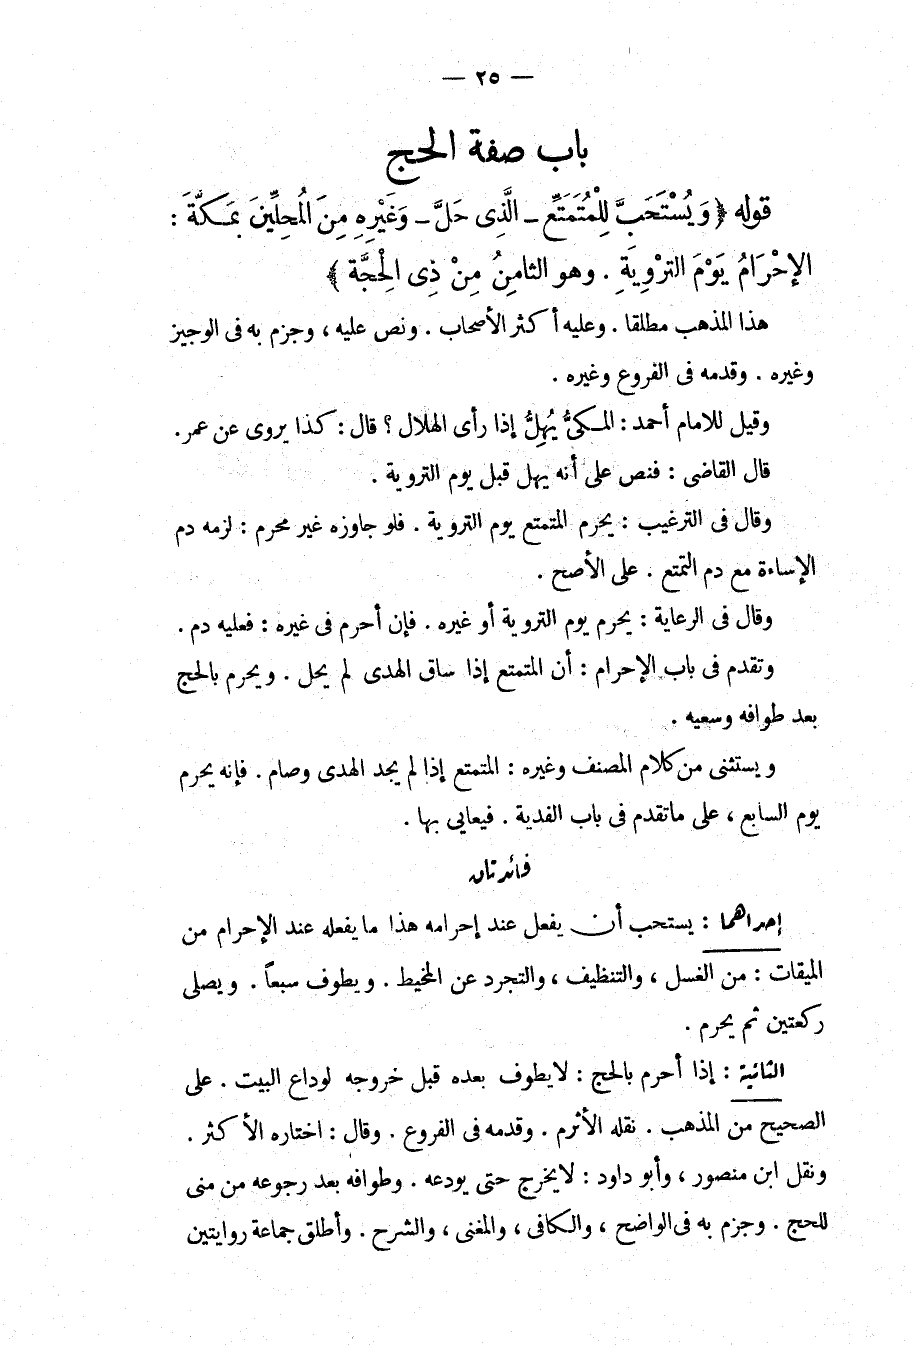 — ٢٥ —
باب صفة الحج
قوله ﴿ وَيُسْتَحَبَّ لِلْمُتَمَتِّعِ ـ الَّذِى حَلَّ ـ وَغَيْرِهِ مِنَ الْمُحِلِّينَ بِمَكَّةَ :
الإحْرَامُ يَوْمَ التَرْوِيَةِ . وهو الثامِنُ مِنْ ذِى الْحِجَّة ﴾
هذا المذهب مطلقا . وعليه أكثر الأصحاب . ونص عليه ، وجزم به فى الوجيز
وغيره . وقدمه فى الفروع وغيره .
وقيل للامام أحمد : المكىُّ يُهِلُّ إذا رأى الهلال ؟ قال : كذا يروى عن عمر .
قال القاضى : فنص على أنه يهل قبل يوم التروية .
وقال فى الترغيب : يحرم المتمتع يوم التروية . فلو جاوزه غير محرم : لزمه دم
الإساءة مع دم التمتع . على الأصح .
وقال فى الرعاية : يحرم يوم التروية أو غيره . فإن أحرم فى غيره : فعليه دم .
وتقدم فى باب الإحرام : أن المتمتع إذا ساق الهدى لم يحل . ويحرم بالحج
بعد طوافه وسعيه .
ويستثنى من كلام المصنف وغيره : المتمتع إذا لم يجد الهدى وصام . فإنه يحرم
يوم السابع ، على ماتقدم فى باب الفدية . فيعايى بها .
فائدتان
إحداهما : يستحب أن يفعل عند إحرامه هذا مايفعله عند الإحرام من
الميقات : من الغسل ، والتنظيف ، والتجرد عن المخيط . ويطوف سبعاً . ويصلى
ركعتين ثم يحرم .
الثانية : إذا أحرم بالحج : لايطوف بعده قبل خروجه لوداع البيت . على
الصحيح من المذهب . نقله الأثرم . وقدمه فى الفروع . وقال : اختاره الأكثر .
ونقل ابن منصور ، وأبو داود : لايخرج حتى يودعه . وطوافه بعد رجوعه من منى
للحج . وجزم به فى الواضح ، والكافى ، والمغنى ، والشرح . وأطلق جماعة روايتين